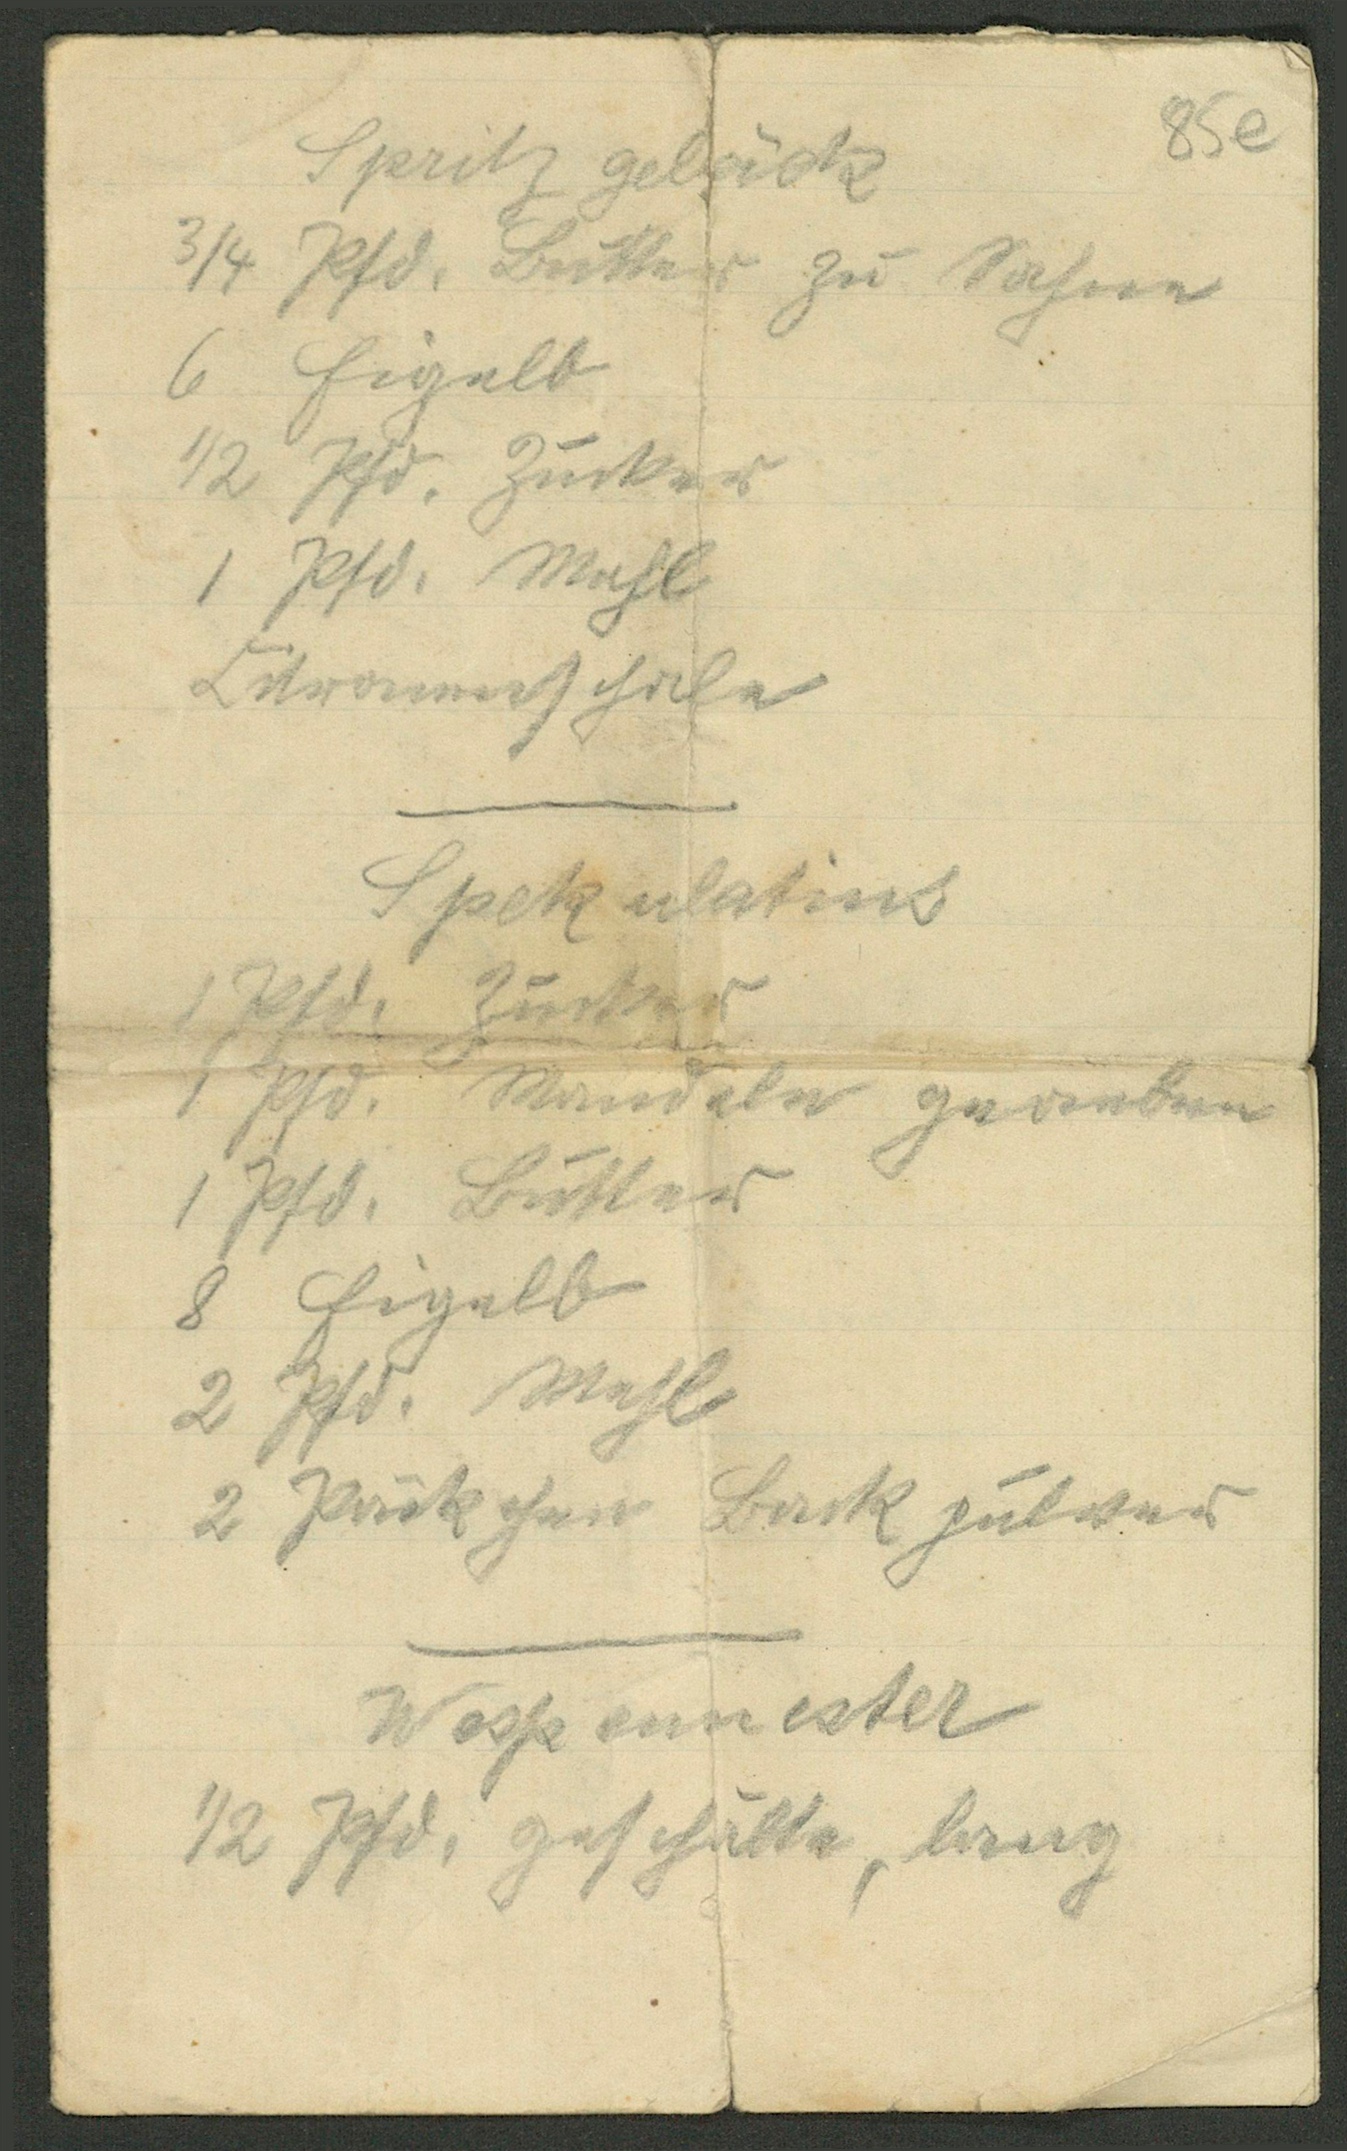 85e
Spritz gebäck
3/4 Pfd. Butter zu Sahne
6 Eigelb
1/2 Pfd. Zucker
1 Pfd. Mehl
Citronenschale
Spekulatius
1 Pfd. Zucker
1 Pfd. Mandeln gerieben
1 Pfd. Butter
8 Eigelb
2 Pfd. Mehl
2 Päckchen Backpulver
Wespennester
1/2 Pfd. geschälte, lang